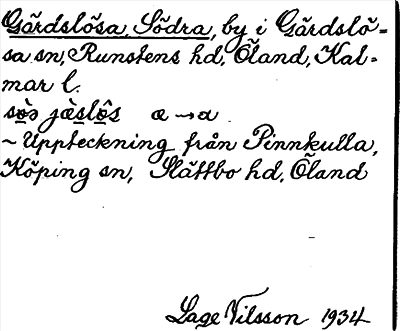 Gårdslösa, Södra, by i Gårdslö-
sa sn, Runstens hd, Öland, Kal-
mar l.
sø̀s jæ̀slø̂s æ → a
~ Uppteckning från Pinnkulla,
Köping sn, Slättbo hd, Öland
Lage Nilsson 1934